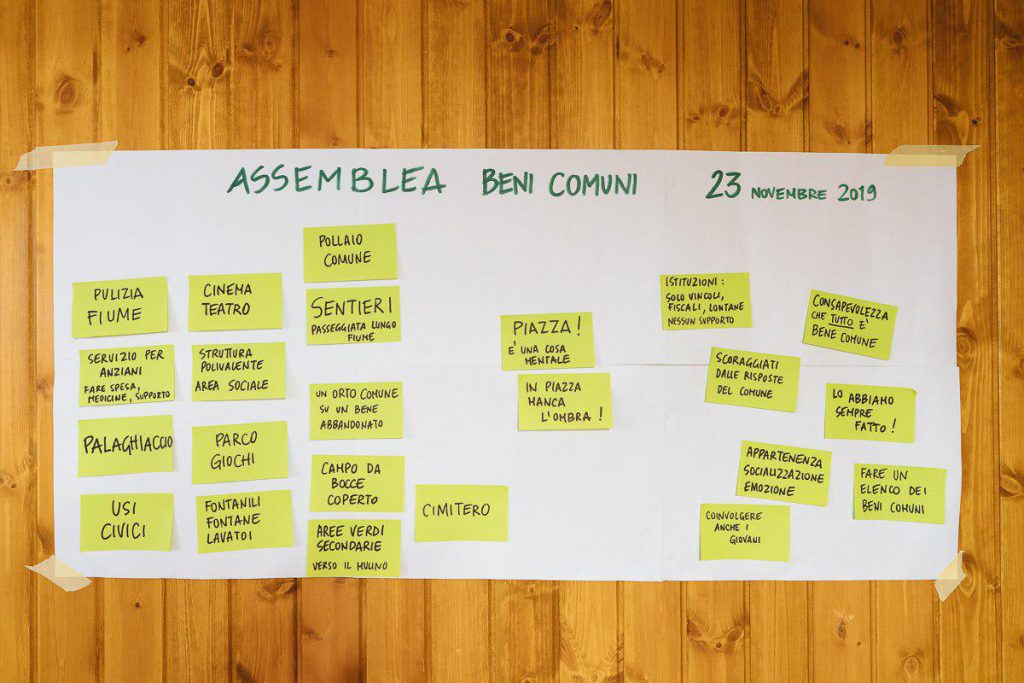 ASSEMBLEA BENI COMUNI 23 NOVEMBRE 2019
PULIZIA
FIUME
SERVIZIO PER
ANZIANI
FARE SPESA,
MEDICINE, SUPPORTO
PALAGHIACCIO
USI
CIVICI
CINEMA
TEATRO
STRUTTURA
POLIVALENTE
AREA SOCIALE
PARCO
GIOCHI
FONTANILI
FONTANE
LAVATOI
POLLAIO
COMUNE
SENTIERI
PASSEGGIATA LUNGO
FIUME
UN ORTO COMUNE
SU UN BENE
ABBANDONATO
CAMPO DA
BOCCE
COPERTO
AREE VERDI
SECONDARIE
VERSO IL MULINO
CIMITERO
PIAZZA!
E' UNA COSA
MENTALE
IN PIAZZA
MANCA
L'OMBRA!
ISTITUZIONI:
SOLO VINCOLI,
FISCALI, LONTANE
NESSUN SUPPORTO
CONSAPEVOLEZZA
CHE TUTTO E'
BENE COMUNE
SCORAGGIATI
DALLE RISPOSTE
DEL COMUNE
LO ABBIAMO
SEMPRE
FATTO!
APPARTENENZA
SOCIALIZZAZIONE
EMOZIONE
FARE UN
ELENCO DEI
BENI COMUNI
COINVOLGERE
ANCHE I
GIOVANI